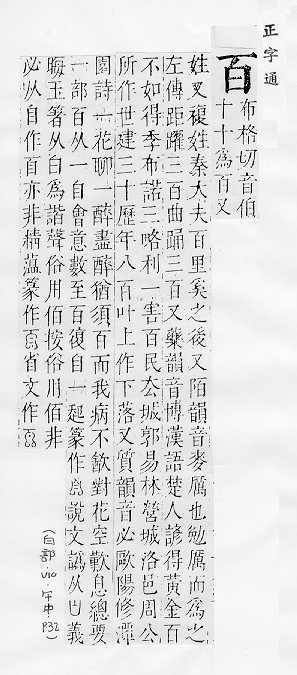 正字通
百
布格切音伯
十十爲百又
姓又複姓秦大夫百里奚之後又陌韻音麥厲也勉厲而爲之
左傳距躍三百曲踊三百又藥韻音博漢語楚人諺得黃金百
不如得季布諾三略利一害百民去城郭易林營城洛邑周公
所作世建三十歷年八百叶上作下落又質韻音必歐陽修潭
園詩一花聊一醉盡醉猶須百而我病不飮對花空歎息總要
一部百从一自會意數至百復自一起篆作𦣻說文譌从白義
晦玉箸从白爲諧聲俗用佰按俗用佰非
必从自作百亦非精蘊篆作省文作
(白部·午中 P32)